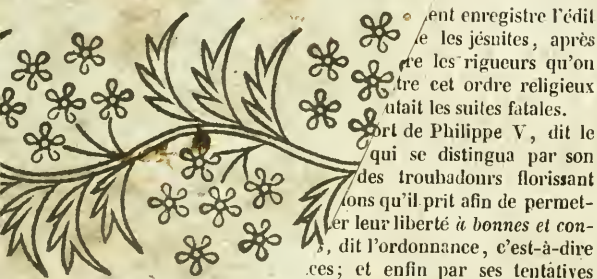 ent enregistre l'édit
les jésuites, après
les rigueurs qu'on
tre cet ordre religieux
utait les suites fatales.
ort de Philippe V, dit le
qui se distingua par son
des troubadours florissant
ions qu'il prit afin de permet-
er leur liberté à bonnes et con-
, dit l'ordonnance, c'est-à-dire
ces; et enfin par ses tentatives